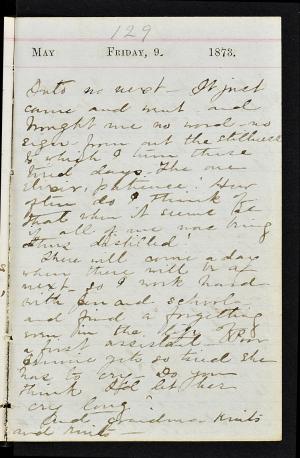 129
MAY FRIDAY, 9. 1873.
no next - It just
came and went and
brought me no word - no
sign from out the stillness
to which I turn these
tired days. The one
elixir, patience! How
often do I think of
that when it seems as
if all of me was being
thus distilled!
There will come a day
when there will be a
next - so I work hard
with pen and school
and find a forgetting
even in the
a first assistant. Poor
Minnie gets so tired she
has to cry. Do you
think I'd let her
cry long?
And Grandma knits
and knits -